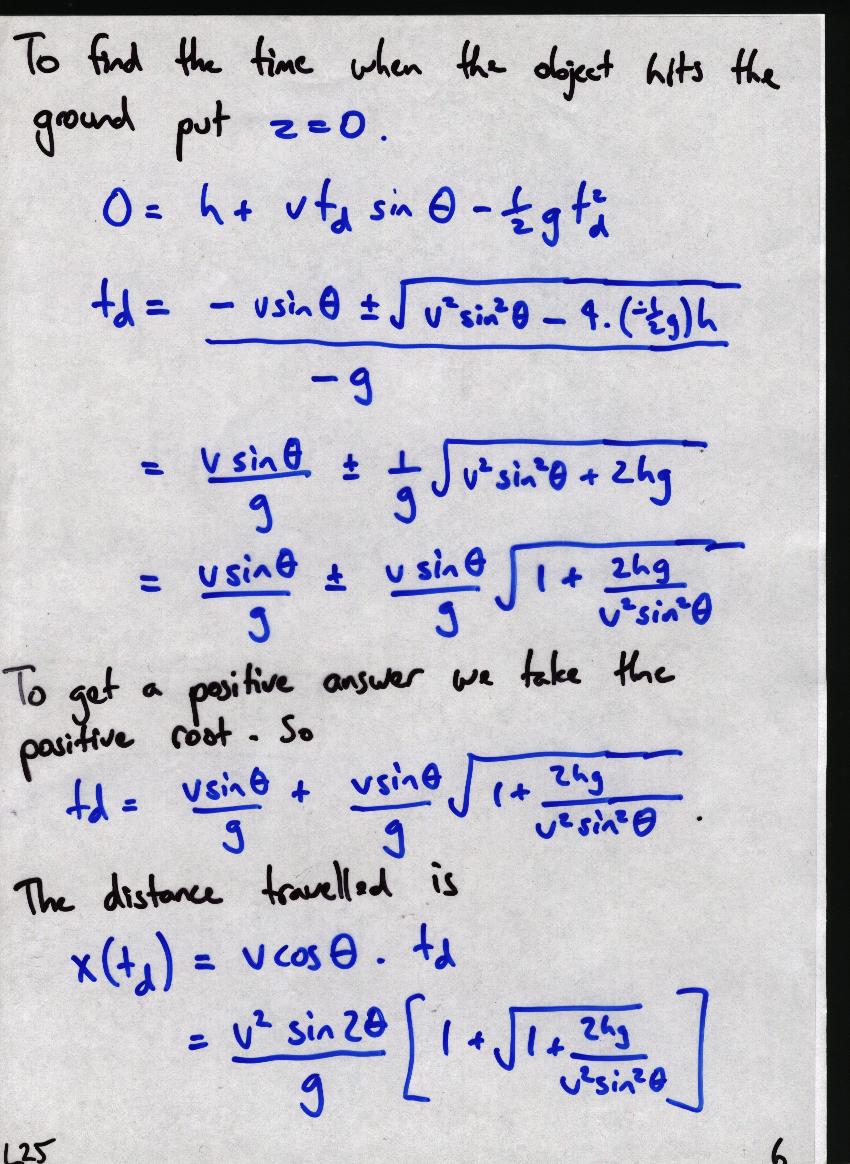 To find the time when the object hits the
ground put z=0.
0 = h + v t_d sin θ - 1/2 g t_d²
t_d = (- v sin θ ± √(v² sin² θ - 4.(-1/2 g)h)) / -g
= v sin θ / g ± 1/g √(v² sin² θ + 2hg)
= v sin θ / g ± v sin θ / g √(1 + 2hg / v² sin² θ)
To get a positive answer we take the
positive root. So
t_d = v sin θ / g + v sin θ / g √(1 + 2hg / v² sin² θ) .
The distance travelled is
x(t_d) = v cos θ . t_d
= v² sin 2θ / g [1 + √(1 + 2hg / v² sin² θ)]
L25 6